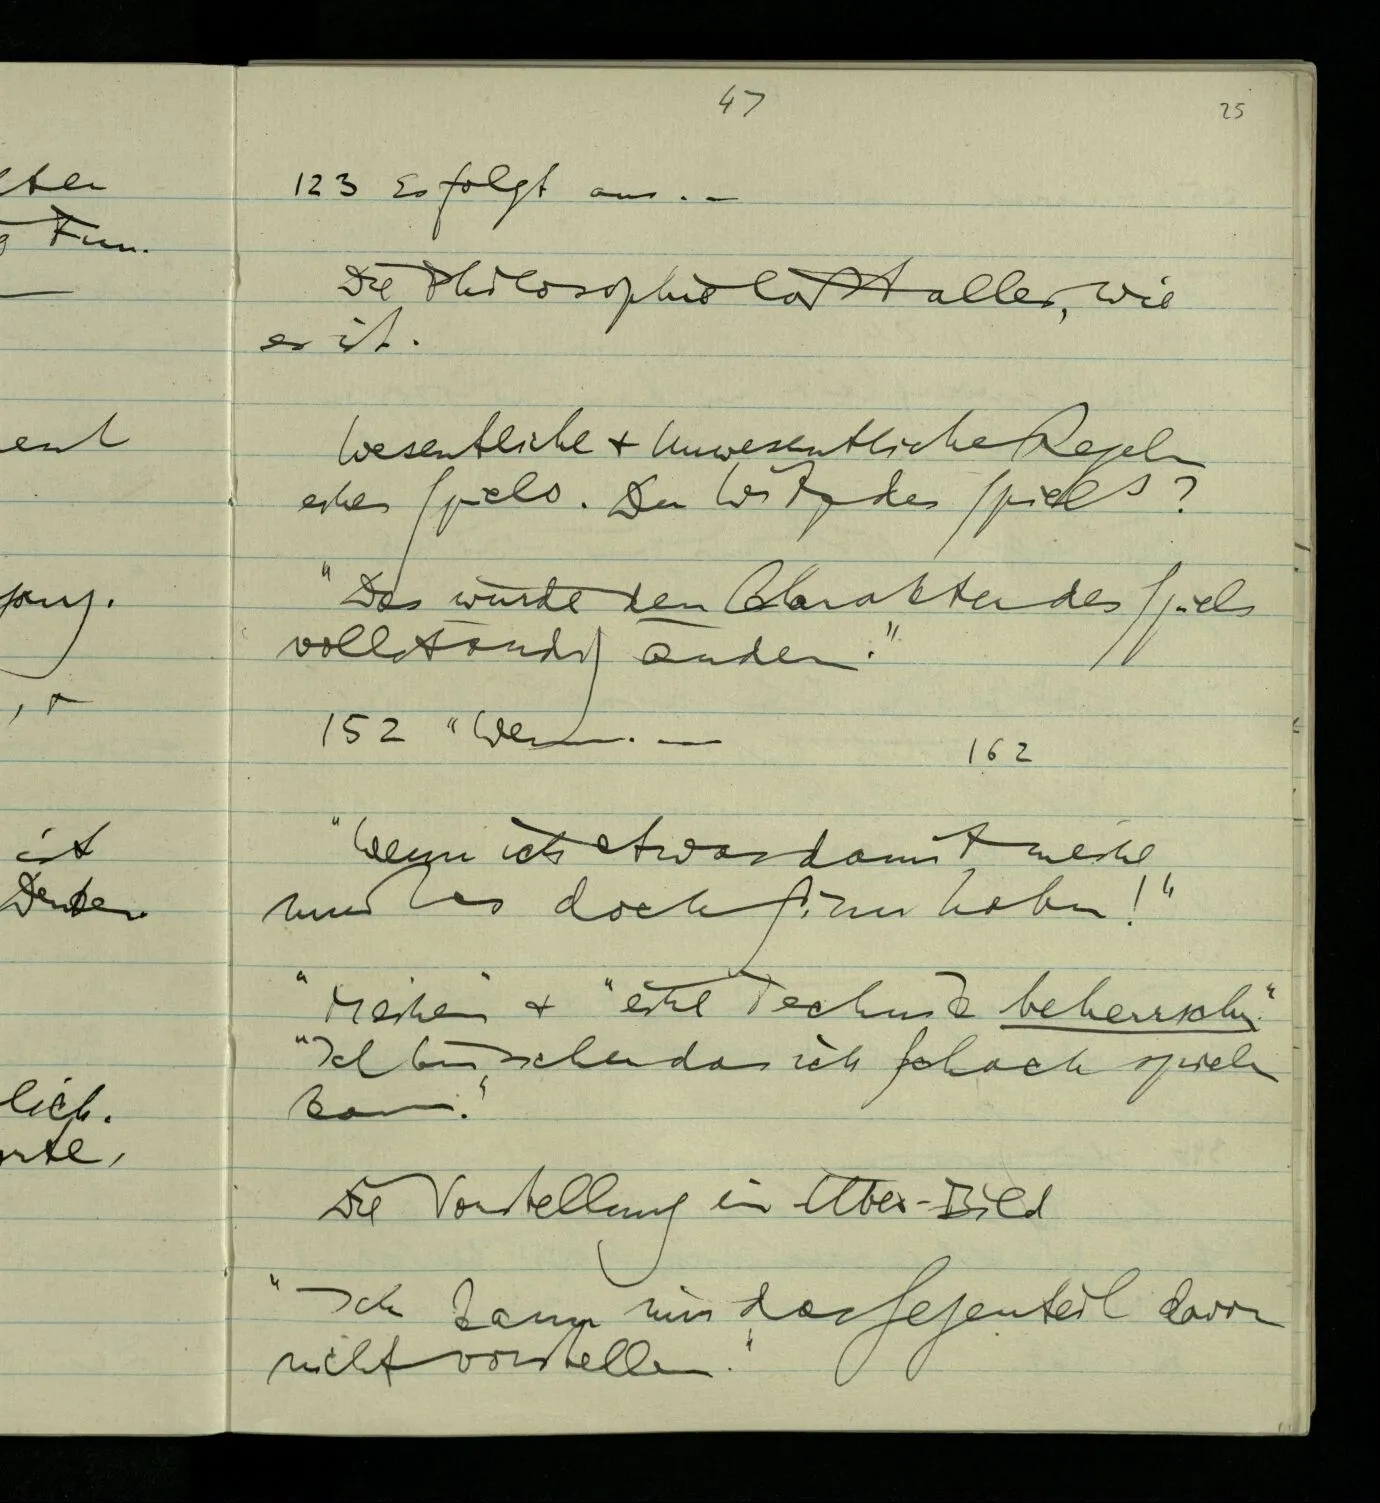 47
25
lich.
ist
Denken.
123 Es folgt aus . –
Die Philosophie läßt alles, wie
es ist.
Wesentliche & Unwesentliche Regeln
eines Spiels. Der Witz des Spiels?
"Das würde den Charakter des Spiels
vollständig ändern."
152 "Wenn . —
162
"Wenn ich etwas damit meine
muß es doch Sinn haben!"
"Meinen" & "eine Technik beherrschen"
"Ich bin sicher daß ich Schach spielen
kann."
Die Vorstellung ein Über-Bild
"Ich kann mir das Gegenteil davon
nicht vorstellen."